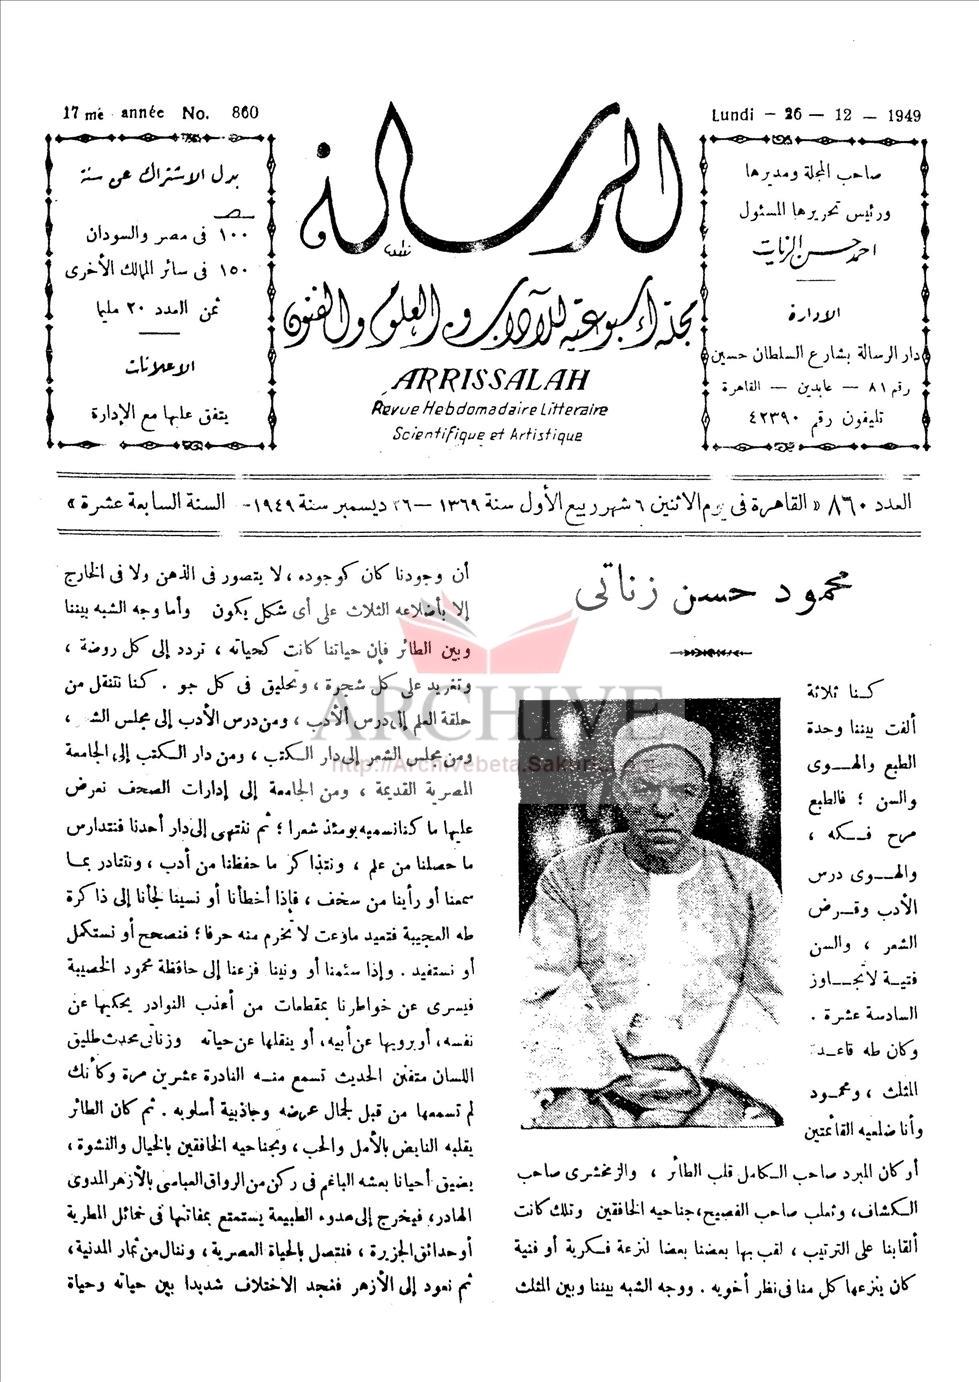 17 me année No. 860
Lundi - 26 - 12 - 1949
صاحب المجلة ومديرها
ورئيس تحريرها المسئول
احمد حسن الزيات
الادارة
دار الرسالة بشارع السلطان حسين
رقم ٨١ — عابدين — القاهرة
تليفون رقم ٤٢٣٩٠
الرسالة
مجلة أسبوعية للآداب والعلوم والفنون
ARRISSALAH
Revue Hebdomadaire Litteraire
Scientifique et Artistique
بدل الاشتراك عن سنة
١٠٠ فى مصر والسودان
١٥٠ فى سائر الممالك الأخرى
ثمن العدد ٢٠ مليما
الاعلانات
يتفق عليها مع الإدارة
العدد ٨٦٠ « القاهرة فى يوم الاثنين ٦ شهر ربيع الأول سنة ١٣٦٩ — ٢٦ ديسمبر سنة ١٩٤٩ - السنة السابعة عشرة »
محمود حسن زناتى
كنا ثلاثة
ألفت بيننا وحدة
الطبع والهوى
والسن ؛ فالطبع
مرح فكه ،
والهوى درس
الأدب وقرض
الشعر ، والسن
فتية لا تجاوز
السادسة عشرة .
وكان طه قاعدة
المثلث ، ومحمود
وأنا ضلعيه القائمتين
أو كان المبرد صاحب الكامل قلب الطائر ، والزمخشرى صاحب
الكشاف ، وثعلب صاحب الفصيح ، جناحيه الخافقين وتلك كانت
ألقابنا على الترتيب ، لقب بها بعضنا بعضا لنزعة فكرية أو فنية
كان ينزعها كل منا فى نظر أخويه . ووجه الشبه بيننا وبين المثلث
أن وجودنا كان كوجوده ، لا يتصور فى الذهن ولا فى الخارج
إلا بأضلاعه الثلاث على أى شكل يكون وأما وجه الشبه بيننا
وبين الطائر فإن حياتنا كانت كحياته ، تردد إلى كل روضة ،
وتغريد على كل شجرة ، وتحليق فى كل جو . كنا نتنقل من
حلقة العلم إلى درس الأدب ، ومن درس الأدب إلى مجلس الشعر ،
ومن مجلس الشعر إلى دار الكتب ، ومن دار الكتب إلى الجامعة
المصرية القديمة ، ومن الجامعة إلى إدارات الصحف نعرض
عليها ما كنا نسميه يومئذ شعرا ؛ ثم ننتهى إلى دار أحدنا فنتدارس
ما حصلنا من علم ، ونتذاكر ما حفظنا من أدب ، ونتنادر بما
سمعنا أو رأينا من سخف ، فإذا أخطأنا أو نسينا لجأنا إلى ذاكرة
طه العجيبة فتعيد ما وعت لا تخرم منه حرفا ؛ فنصحح أو نستكمل
أو نستفيد . وإذا سئمنا أو ونينا فزعنا إلى حافظة محمود الخصيبة
فيسرى عن خواطرنا بمقطعات من أعذب النوادر يحكيها عن
نفسه ، أو يرويها عن أبيه ، أو ينقلها عن حياته وزناتى محدث طليق
اللسان متفنن الحديث تسمع منه النادرة عشرين مرة وكأنك
لم تسمعها من قبل لجمال عرضه وجاذبية أسلوبه . ثم كان الطائر
بقلبه النابض بالأمل والحب ، وبجناحيه الخافقين بالخيال والنشوة ،
يضيق أحيانا بعشه الباغم فى ركن من الرواق العباسى بالأزهر المدوى
الهادر ، فيخرج إلى هدوء الطبيعة يستمتع بمفاتنها فى خمائل المطرية
أو حدائق الجزيرة ، فنتصل بالحياة العصرية ، وننال من ثمار المدنية ،
ثم نعود إلى الأزهر فنجد الاختلاف شديدا بين حياته وحياة
ARCHIVE
http://Archivebeta.Sakhrit